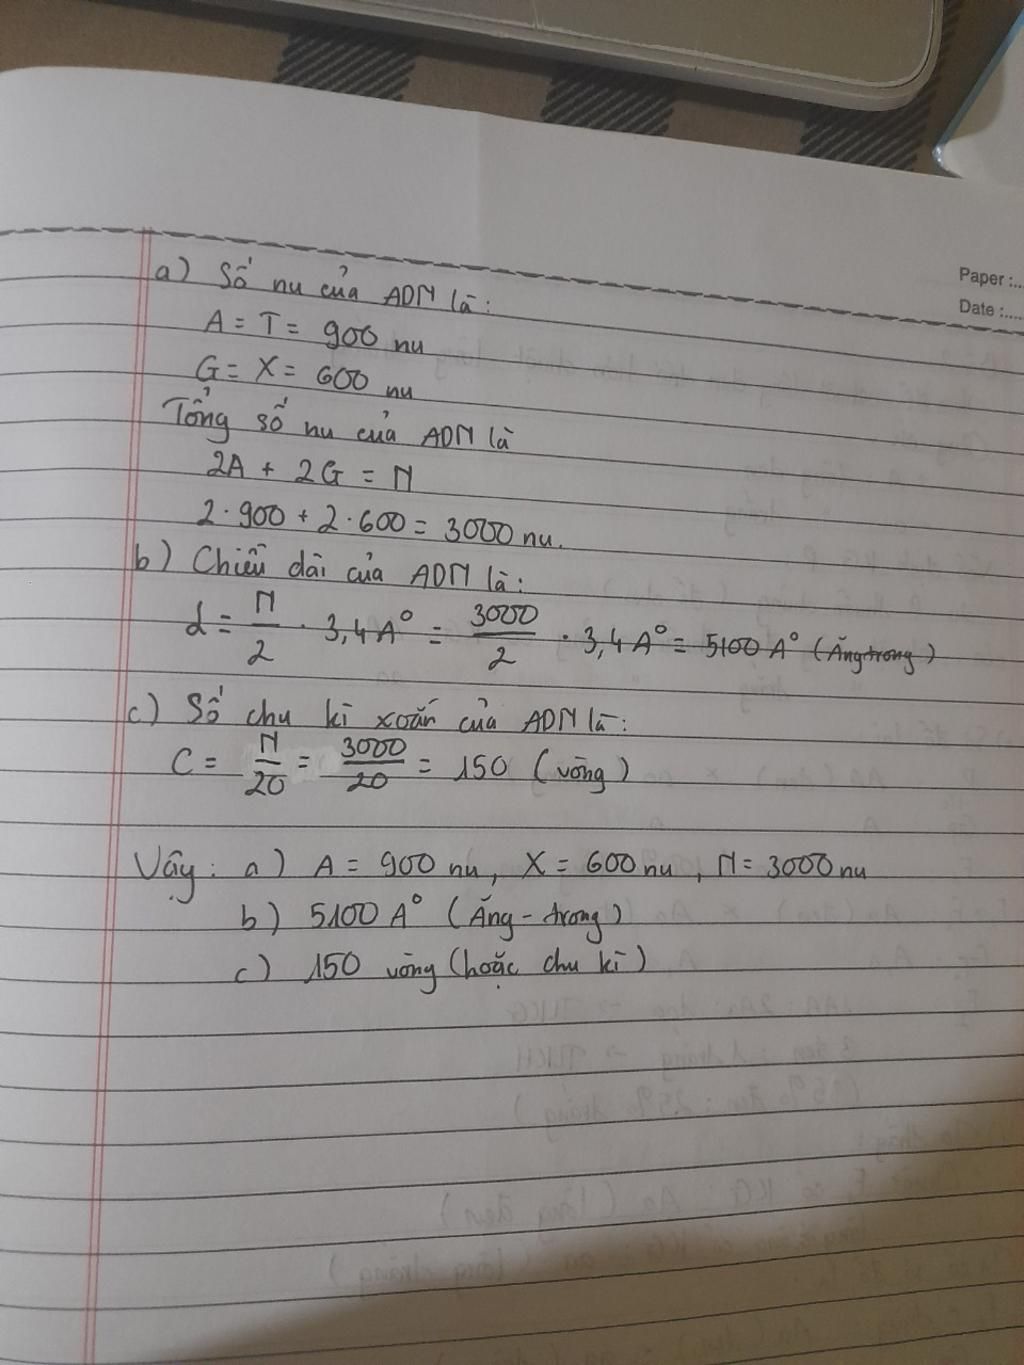 Paper :....
Date :.....
a) Số nu của ADN là:
A = T = 900 nu
G = X = 600 nu
Tổng số nu của ADN là
2A + 2G = N
2 · 900 + 2 · 600 = 3000 nu.
b) Chiều dài của ADN là:
L = N/2 · 3,4 A° = 3000/2 · 3,4 A° = 5100 A° (Ăngtrong)
c) Số chu kì xoắn của ADN là:
C = N/20 = 3000/20 = 150 (vòng)
Vậy: a) A = 900 nu, X = 600 nu, N = 3000 nu
b) 5100 A° (Ăng-trong)
c) 150 vòng (hoặc chu kì)